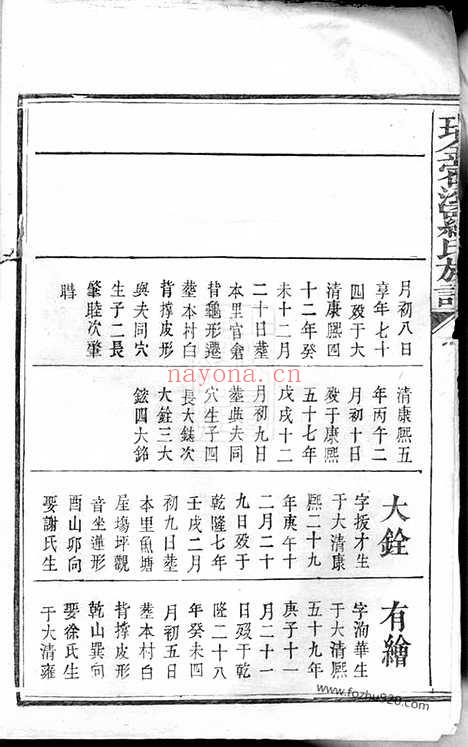 月初八日
享年七十
四歿于大
清康熙四
十二年癸
未十二月
二十日塟
本里官倉
背龜形遷
塟本村白
背撑皮形
與夫同穴
生子二長
肇睦次肇
清康熙五
年丙午二
月初十日
歿于康熙
五十七年
戊戌十二
月初九日
塟與夫同
穴生子四
長大鋕次
大銓三大
四大銘
大銓
字拔才生
于大清康
熙二十九
年庚午十
二月二十
九日歿于
乾隆七年
壬戌二月
初九日塟
本里魚塘
屋塲坪觀
音坐蓮形
酉山卯向
娶謝氏生
有繪
字洵華生
于大清熙
五十九年
庚子十一
月二十一
日歿于乾
隆二十八
年癸未四
月初五日
塟本村白
背撑皮形
乾山巽向
娶徐氏生
于大清雍
nayona.cn
www.fozhu920.com